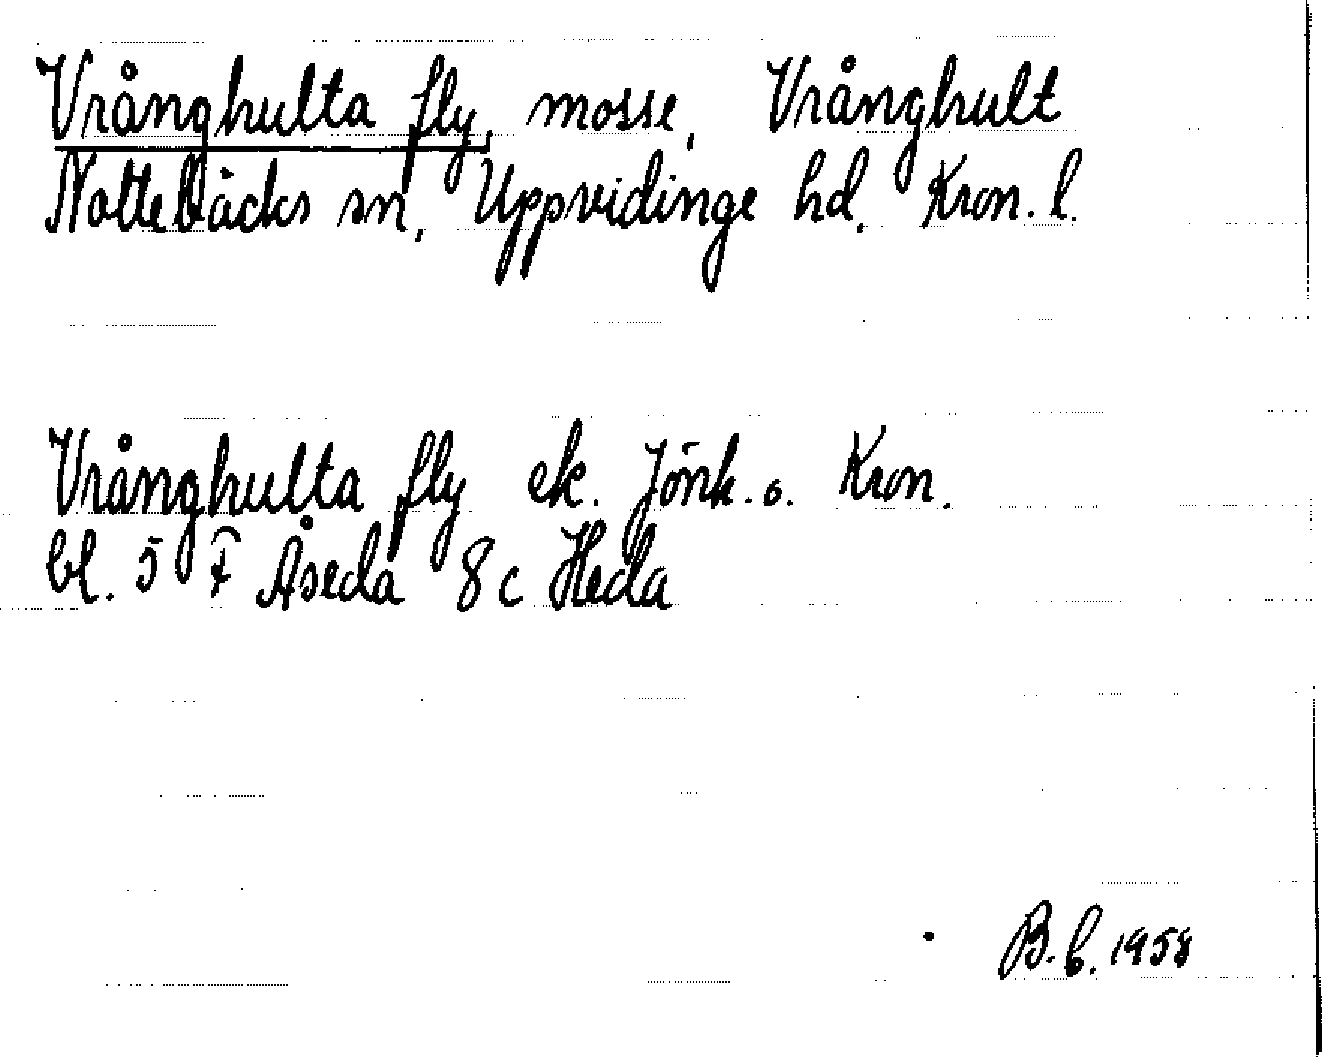 Vrånghulta fly, mosse, Vrånghult
Nottebäcks sn, Uppvidinge hd. Kron. l.
Vrånghulta fly ek. Jönk. o. Kron.
bl. 5 F Åseda 8 c Heda
B.b. 1958